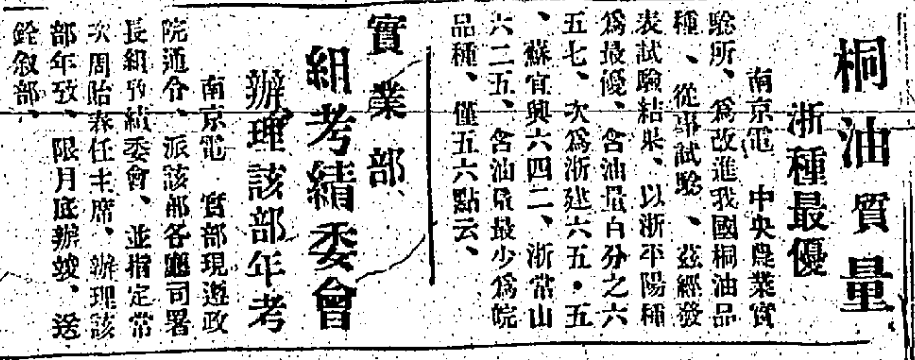 桐油質量
浙種最優
南京電　中央農業實
騐所、爲改進我國桐油品
種、從事試騐、茲經發
表試驗結果、以浙平陽種
爲最優、含油量百分之六
五七、次爲浙建六五・五
、蘇宜興六四二、浙常山
六二五、含油量最少爲皖
品種、僅五六點云、
實業部、
組考績委會
辦理該部年考
南京電　實部現遵政
院通令、派該部各廳司署
長組攷績委會、並指定常
次周貽春任主席、辦理該
部年攷、限月底辦竣、送
銓叙部、